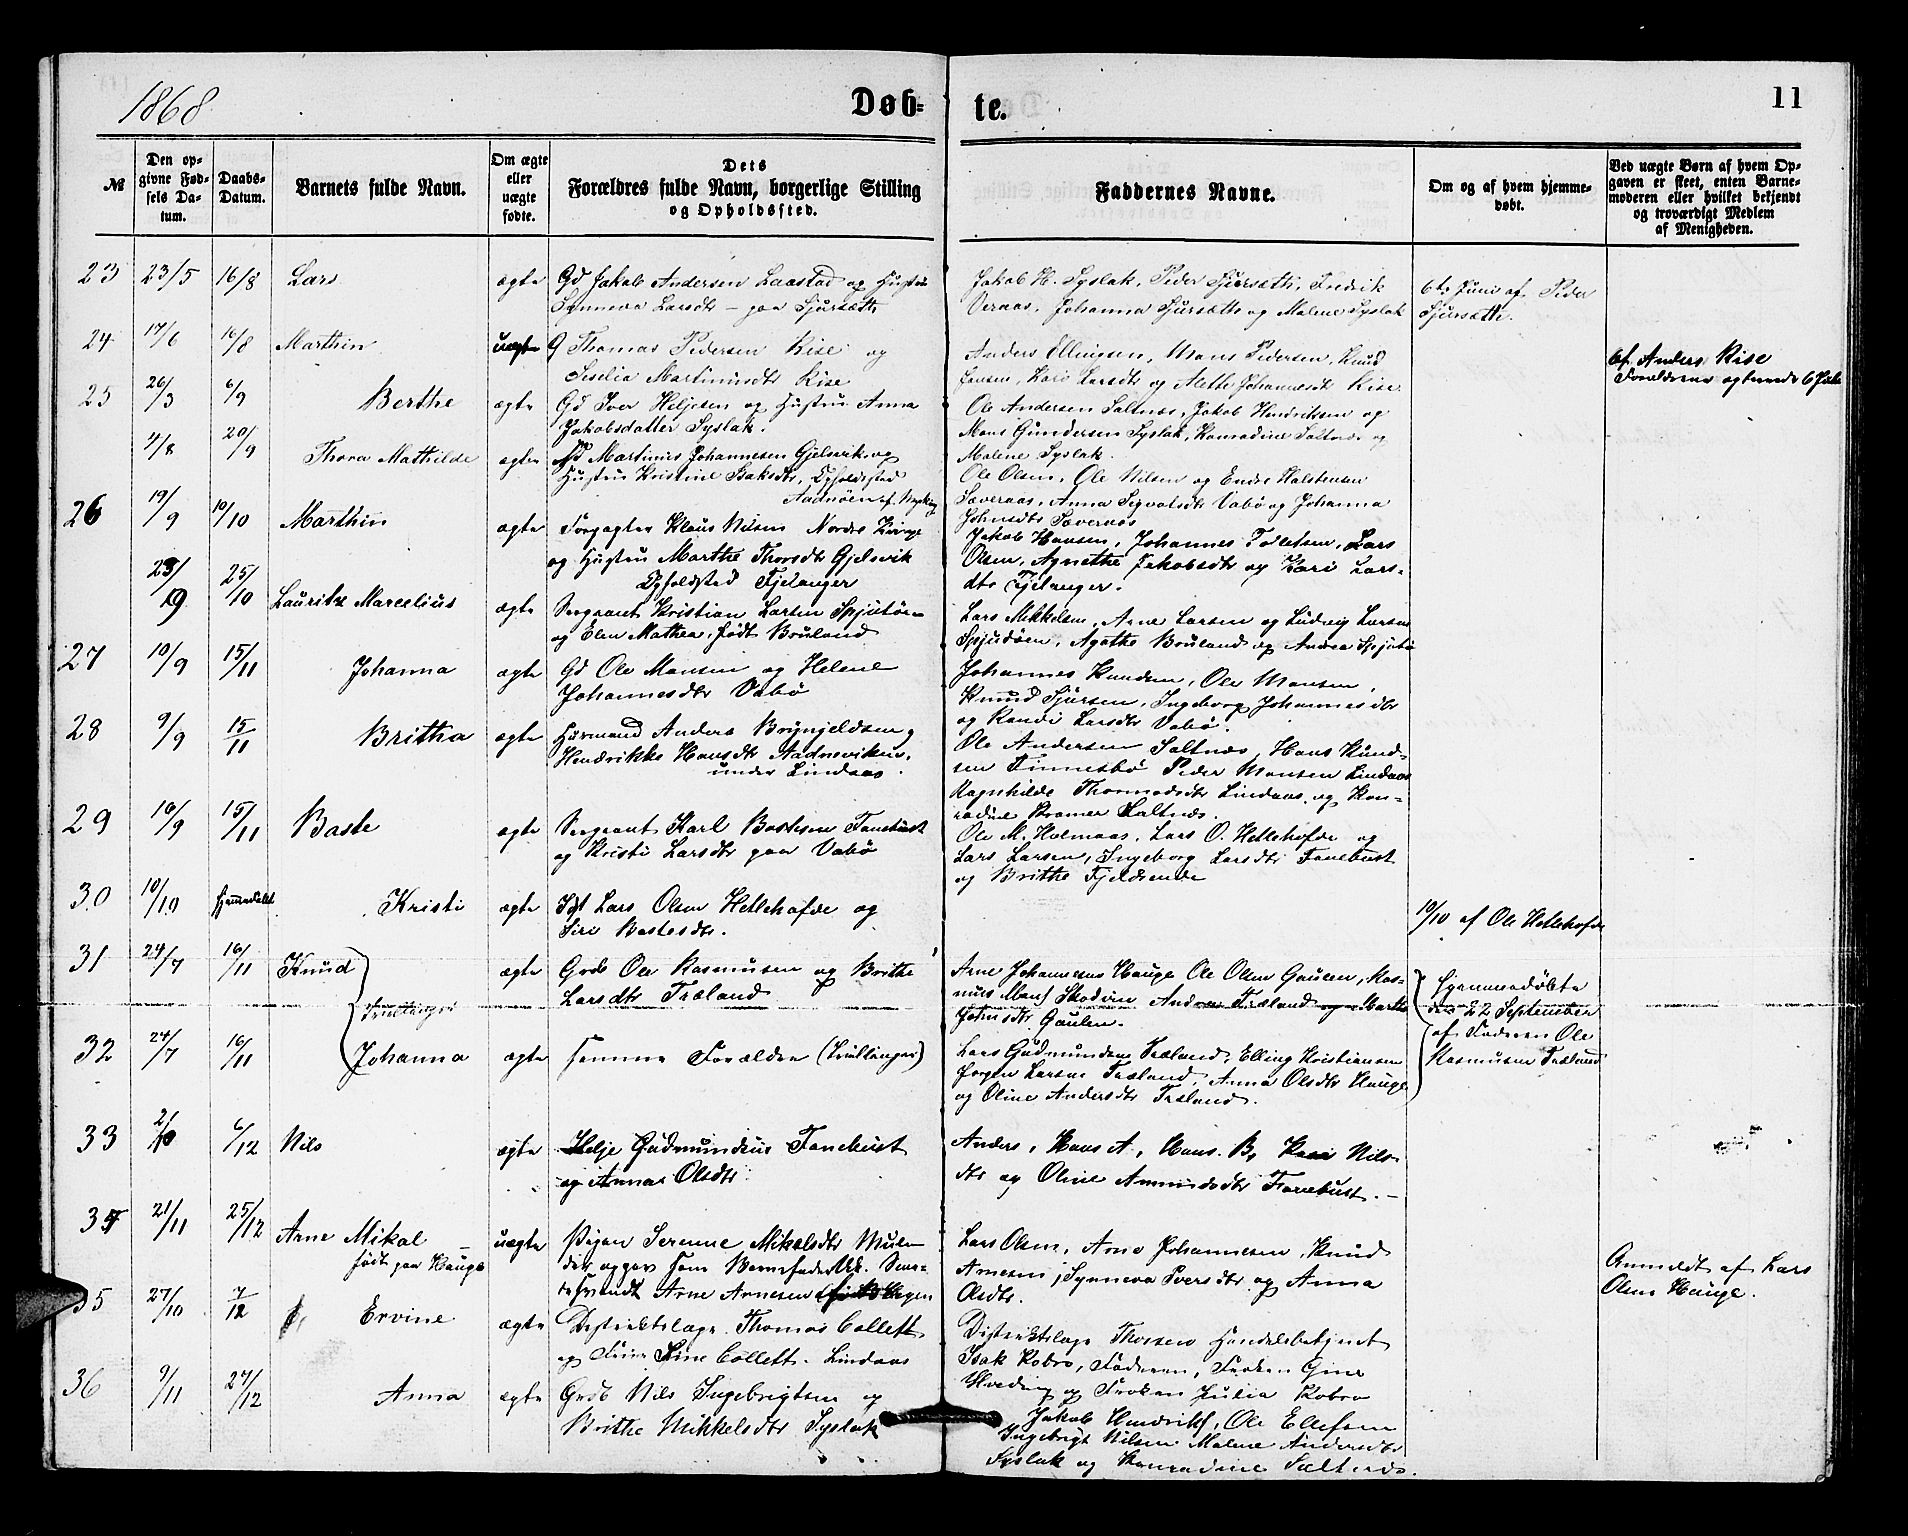 1868
Døb-
te.
11
№
Den op-
givne Fød-
sels Da-
tum.
Daabs-
Datum.
Barnets fulde Navn.
Om ægte
eller
uægte
fødte.
Dets
Forældres fulde Navn, borgerlige Stilling
og Opholdssted.
Faddernes Navne.
Om og af hvem hjemme-
døbt.
Ved uægte Børn af hvem Op-
gaven er skeet, enten Barne-
moderen eller hvilket bekjendt
og troværdigt Medlem
af Menigheden.
23 23/5 16/8 Lars ægte Gd Jakob Andersen Laastad og Hustru
Synneva Larsdtr - paa Sjursætt
Jakob H. Syslak, Peder Sjursætt, Fredrik
Vernaas, Johanna Sjursætt og Malene Syslak
6te Juni af Peder
Sjursætt.
24 17/6 16/8 Marthin uægte G Thomas Pedersen Rise og
Seselia Martinusdtr Rise
Anders Ellingsen, Mons Pedersen, Knud
Jansen, Kari Larsdtr og Alethe Johannesdtr Rise
af Anders Rise
Forældrene ægteviede 6 Juli
25 26/3 6/9 Berthe ægte Gd Iver Heljesen og Hustru Anna
Jakobsdatter Syslak.
Ole Andersen Saltnæs, Jakob Hendriksen og
Mons Gundersen Syslak, Konradine Saltnæs og
Malene Syslak.
7/8 20/9 Thora Mathilde ægte Martinus Johannesen Gjelsvik og
Hustru Kristine Isaksdtr, Opholdssted
Aadnøen
Ole Olsen, Ole Nilsen og Endre Halstensen
Sæveraas, Anna Sigvatsdtr Vabø og Johanna
Johnsdtr Sæveraas
26 19/9 10/10 Marthin ægte Klaus Nilsen Nordre
og Hustru Marthe Thorsdtr Gjelsvik
Opholdssted Fjelanger
Jakob Hansen, Johannes Tolletsen, Lars
Olsen, Agnethe Jakobsdtr og Kari Lars-
dtr Fjelanger.
23/9 25/10 Lauritz Marcelius ægte Sergeant Kristian Larsen Spjutøen
og Elen Mathea, født Bruland
Lars Mikkelsen, Arne Larsen og Ludvig Larsen
Spjudøen, Agathe Bruland og Andrea Spjutø
27 10/9 15/11 Johanna ægte Gd Ole Monsen og Helene
Johannesdtr Vabø
Johannes Knudsen, Ole Monsen,
Knud Sjursen, Ingeborg Johannesdtr
og Randi Larsdtr Vabø.
28 9/9 15/11 Britha ægte Huusmand Anders Brynjeldsen og
Hendrikke Hansdtr Aadnevikens
under Lindaas.
Ole Andersen Saltnæs, Hans Knud-
sen Finnesbø Peder Monsen Lindaas
Ragnhilde Thormodsdtr Lindaas og Kon-
radine Kramer Saltnæs.
29 16/9 15/11 Baste ægte Sergeant Karl Bastesen Fanebust
og Kristi Larsdtr paa Vabø
Ole M. Holmaas, Lars O. Hetlehofde og
Lars Larsen, Ingeborg Larsdtr Fanebust
og Brithe Fjeldsende
30 10/10 hjemmedøbt Kristi ægte Lars Olsen Hetlehofde og
Siri Bastesdtr.
19/10 af Ole Hetlehofde
31 24/7 16/11 Knud ægte Grdb Ole Rasmusen og Brithe
Larsdtr Træland
Arne Johannesen Hauge Ole Olsen Gaulen, Ras-
mus Mons Skodvin Andrea Træland og Marthe
Johnsdtr Gaulen.
Hjemmedøbte
den 22 September
af Faderen Ole
Rasmusen Træland
Tvillinger
32 24/7 16/11 Johanna ægte samme Forældre (Tvillinger)
Lars Gudmundsen Træland, Elling Kristiansen
Jørgen Larsen Træland, Anna Olsdtr Hauge
og Oline Andersdtr Træland.
33 2/10 6/12 Nils ægte Helje Gudmundsen Fanebust
og Anna Olsdtr
Anders, Hans A, Hans B, Kari Nils-
dtr og Oline Amundsdtr Fanebust.
34 21/11 25/12 Arne Mikal uægte Pigen Serenne Mikalsdtr Mule
født paa Hauge
der opgav som Barnefader
Arne Arnesen
Lars Olsen, Arne Johannesen, Knud
Arnesen, Synneva Iversdtr og Anna
Olsdtr.
Anmeldt af Lars
Olsen Hauge.
35 27/10 7/12 Ervine ægte Distriktslæge Thomas Collett
og Frue Line Collett. Lindaas
Distriktslæge Thoresen Handelsbetjent
Isak Kobro, Faderen, Frøken Gine
Hveding og Frøken Julia Kobro
36 9/11 27/12 Anna ægte Grdb Nils Ingebrigtsen og
Brithe Mikkelsdtr Syslak
Jakob Hendriks, Ole Ellefsen
Ingebrigt Nilsen Malene Andersdtr
Syslak og Konradine Saltnæs.